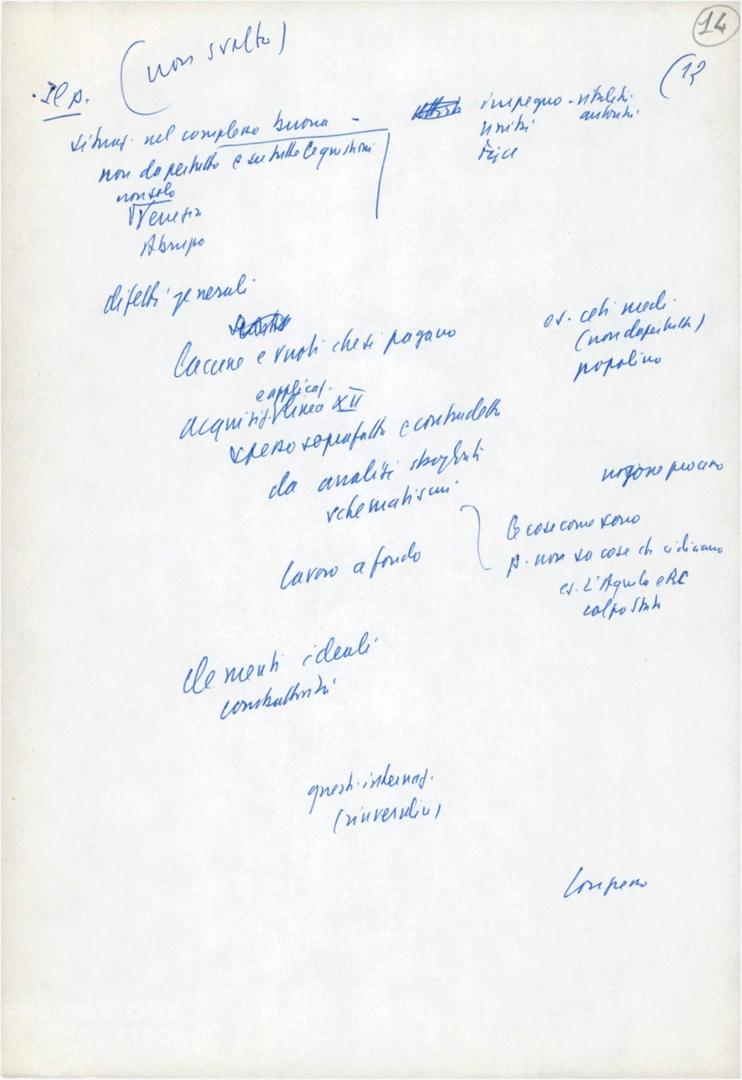 14
(12
(non svolto)
Il p.
situaz. nel complesso buona -
non dapertutto e su tutte le questioni
non solo
Venezia
Abruzzo
impegno - vitalità
unità
difetti generali
lacune e vuoti che si pagano
es. ceti medi
(non dapertutto)
popolino
e applicaz.
acquisiz. linea XII
spesso sopraffatta e contraddetta
da analisi sbagliate
schematismi
lavoro a fondo
le cose come sono
p. non sa cose che ci diciamo
es. L'Aquila e RC
colpo Stato
elementi ideali
combattività
quest. internaz.
(universalità)
Congresso